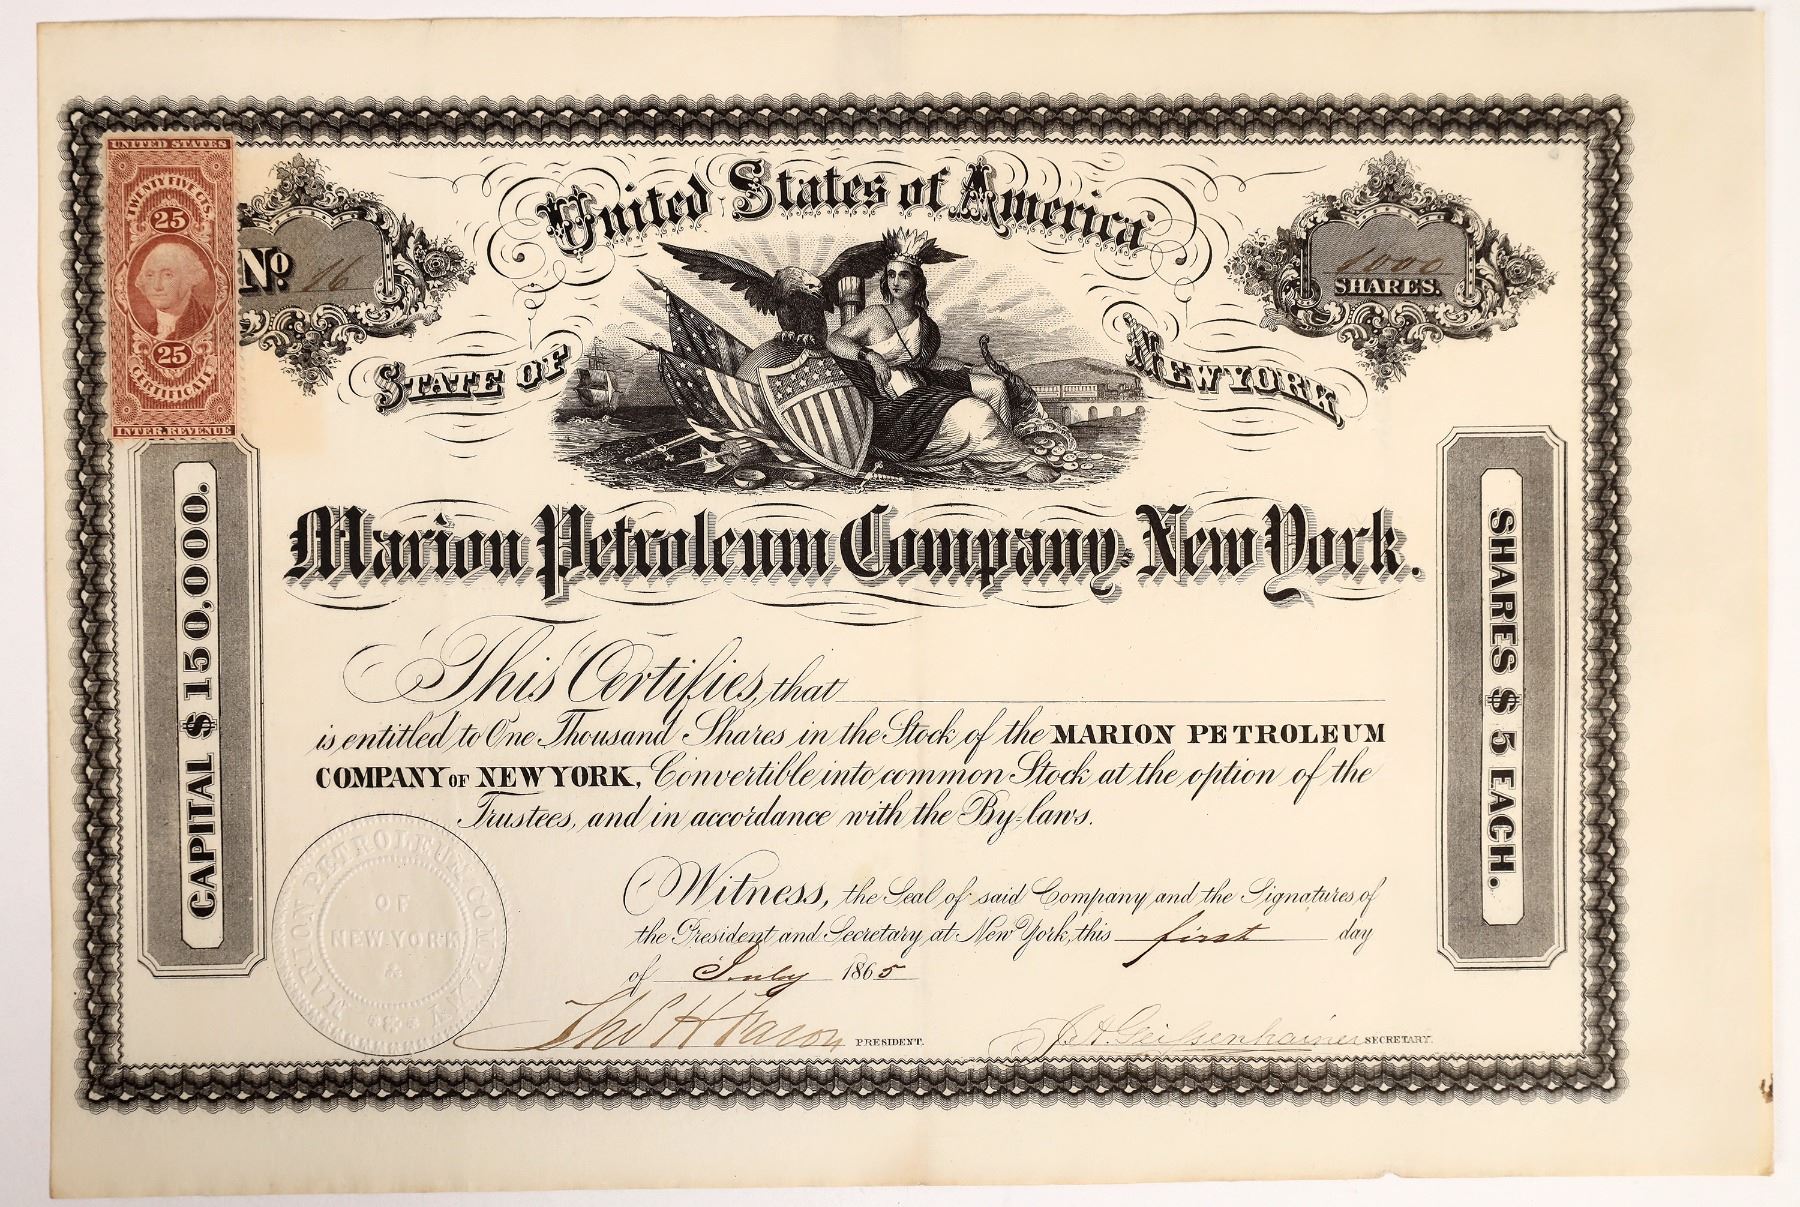 UNITED STATES
TWENTY FIVE CTS.
25
25
CERTIFICATE
INTER. REVENUE
No. 76
1000
SHARES.
United States of America
STATE OF NEW YORK,
Marion Petroleum Company, New York.
CAPITAL $150,000.
SHARES $5 EACH.
This Certifies, that
is entitled to One Thousand Shares in the Stock of the MARION PETROLEUM
COMPANY OF NEW YORK, Convertible into common Stock at the option of the
Trustees, and in accordance with the By-laws.
Witness, the Seal of said Company and the Signatures of
the President and Secretary, at New York, this first day
of July 1865
MARION PETROLEUM COMPANY
OF
NEW-YORK
Thos H Faron PRESIDENT.
J. A. Geissenhainer SECRETARY.